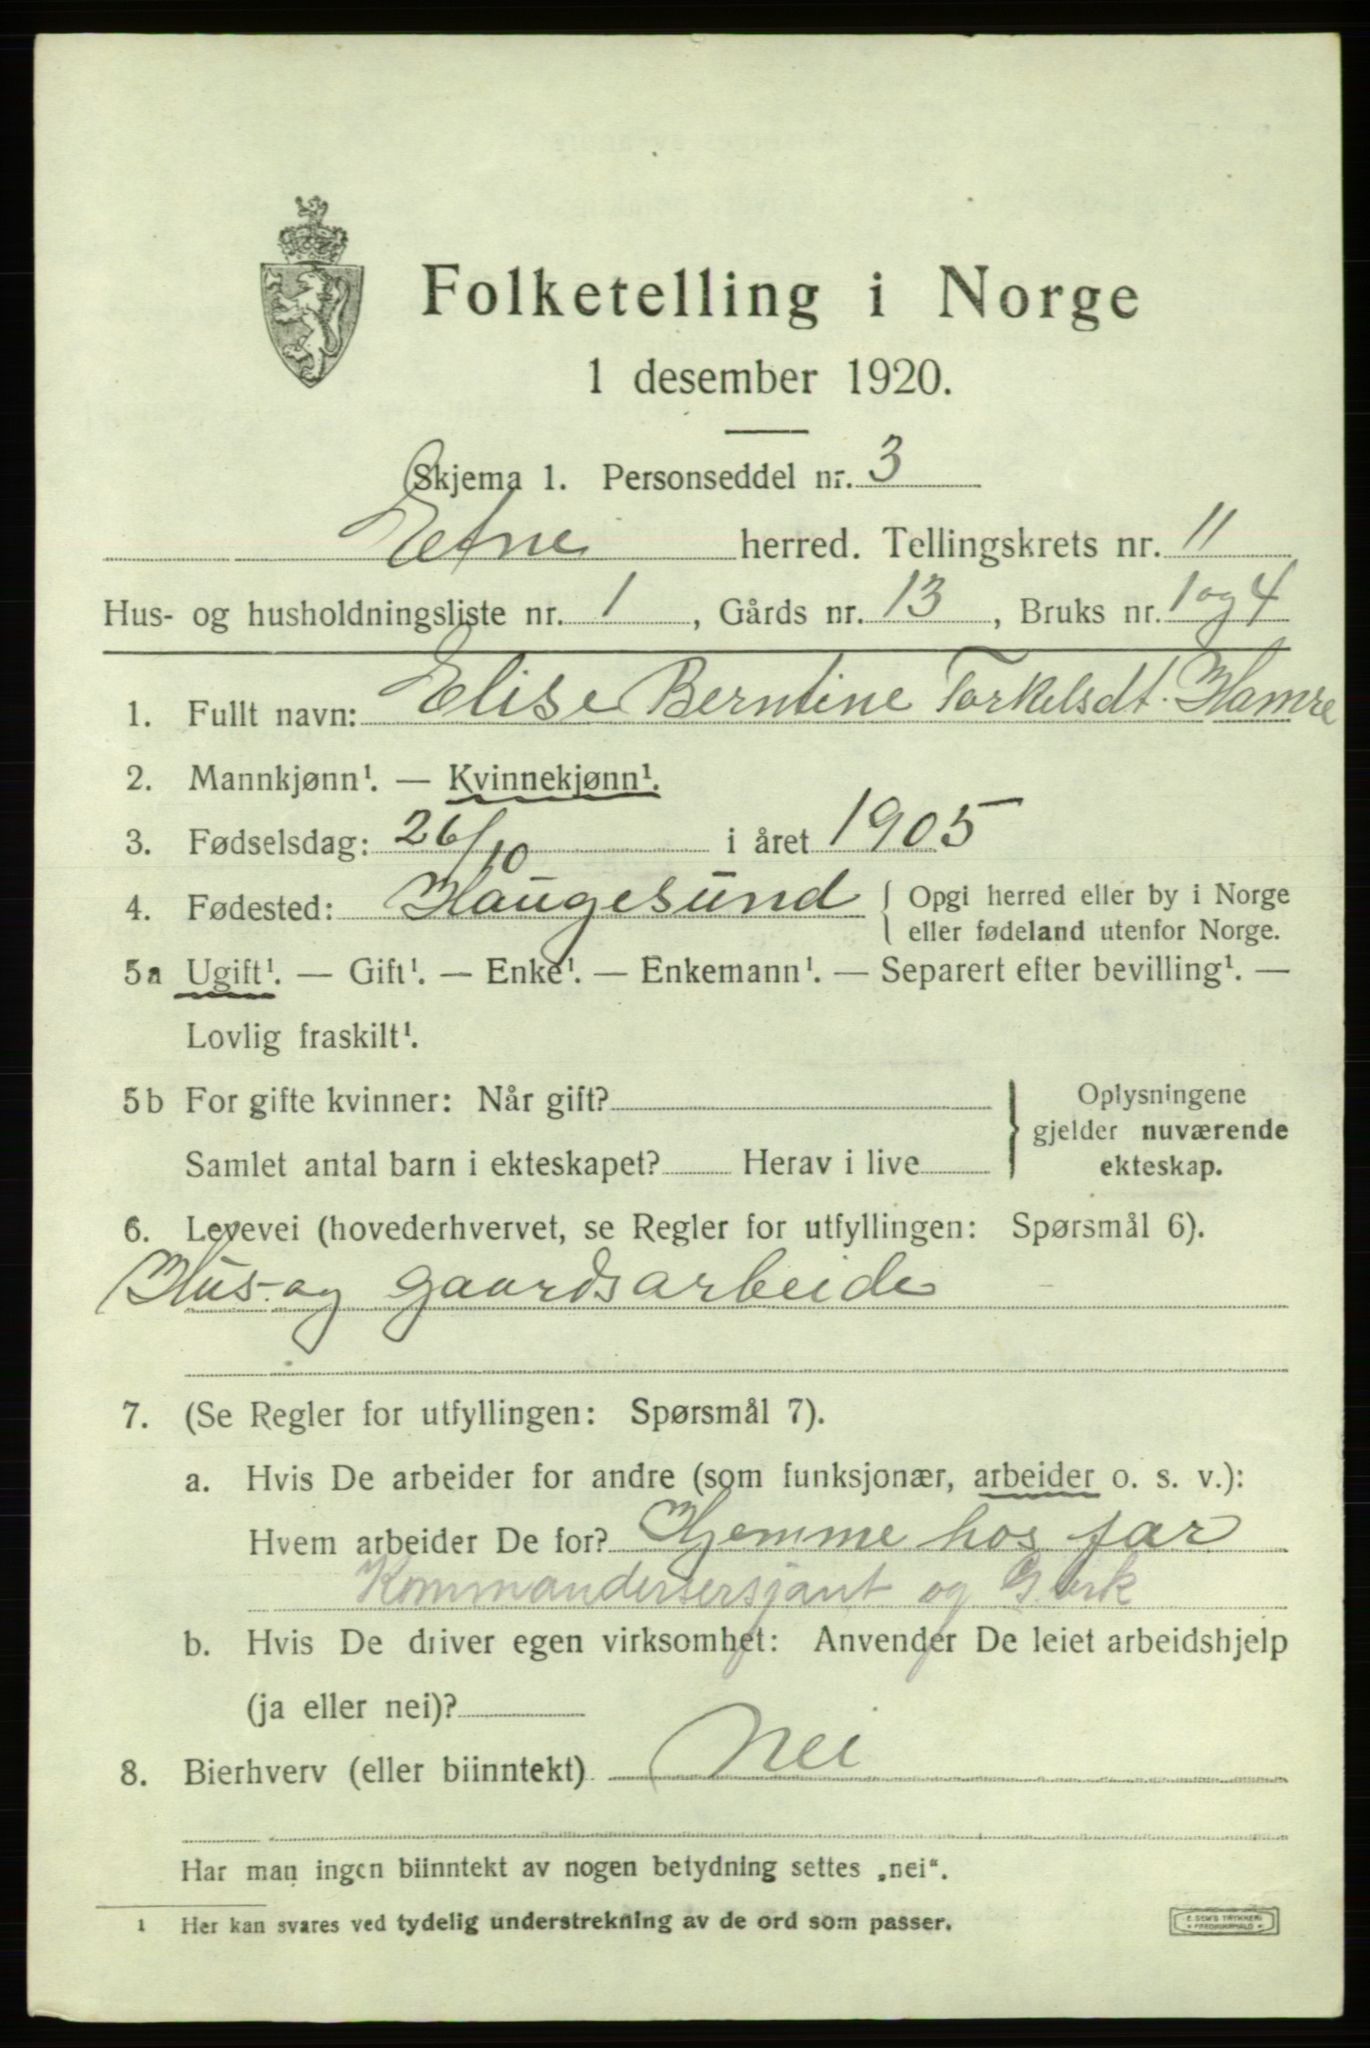 Folketelling i Norge
1 desember 1920.
Skjema 1. Personseddel nr. 3
Etne herred. Tellingskrets nr. 11
Hus- og husholdningsliste nr. 1, Gårds nr. 13, Bruks nr. 1 og 4
1. Fullt navn: Elise Berntine Torkelsdt. Hamre
2. Mannkjønn¹. — Kvinnekjønn¹.
3. Fødselsdag: 26/10 i året 1905
4. Fødested: Haugesund { Opgi herred eller by i Norge
eller fødeland utenfor Norge.
5a Ugift¹. — Gift¹. — Enke¹. — Enkemann¹. — Separert efter bevilling¹. —
Lovlig fraskilt¹.
5b For gifte kvinner: Når gift? } Oplysningene
gjelder nuværende
Samlet antal barn i ekteskapet? Herav i live ekteskap.
6. Levevei (hovederhvervet, se Regler for utfyllingen: Spørsmål 6).
Hus- og gaardsarbeide
7. (Se Regler for utfyllingen: Spørsmål 7).
a. Hvis De arbeider for andre (som funksjonær, arbeider o. s. v.):
Hvem arbeider De for? Hjemme hos far
Kommandersersjant og G.brk
b. Hvis De driver egen virksomhet: Anvender De leiet arbeidshjelp
(ja eller nei)?
8. Bierhverv (eller biinntekt) Nei
Har man ingen biinntekt av nogen betydning settes „nei“.
¹ Her kan svares ved tydelig understrekning av de ord som passer.
E. SEM'S TRYKKERI
FREDRIKSHALD